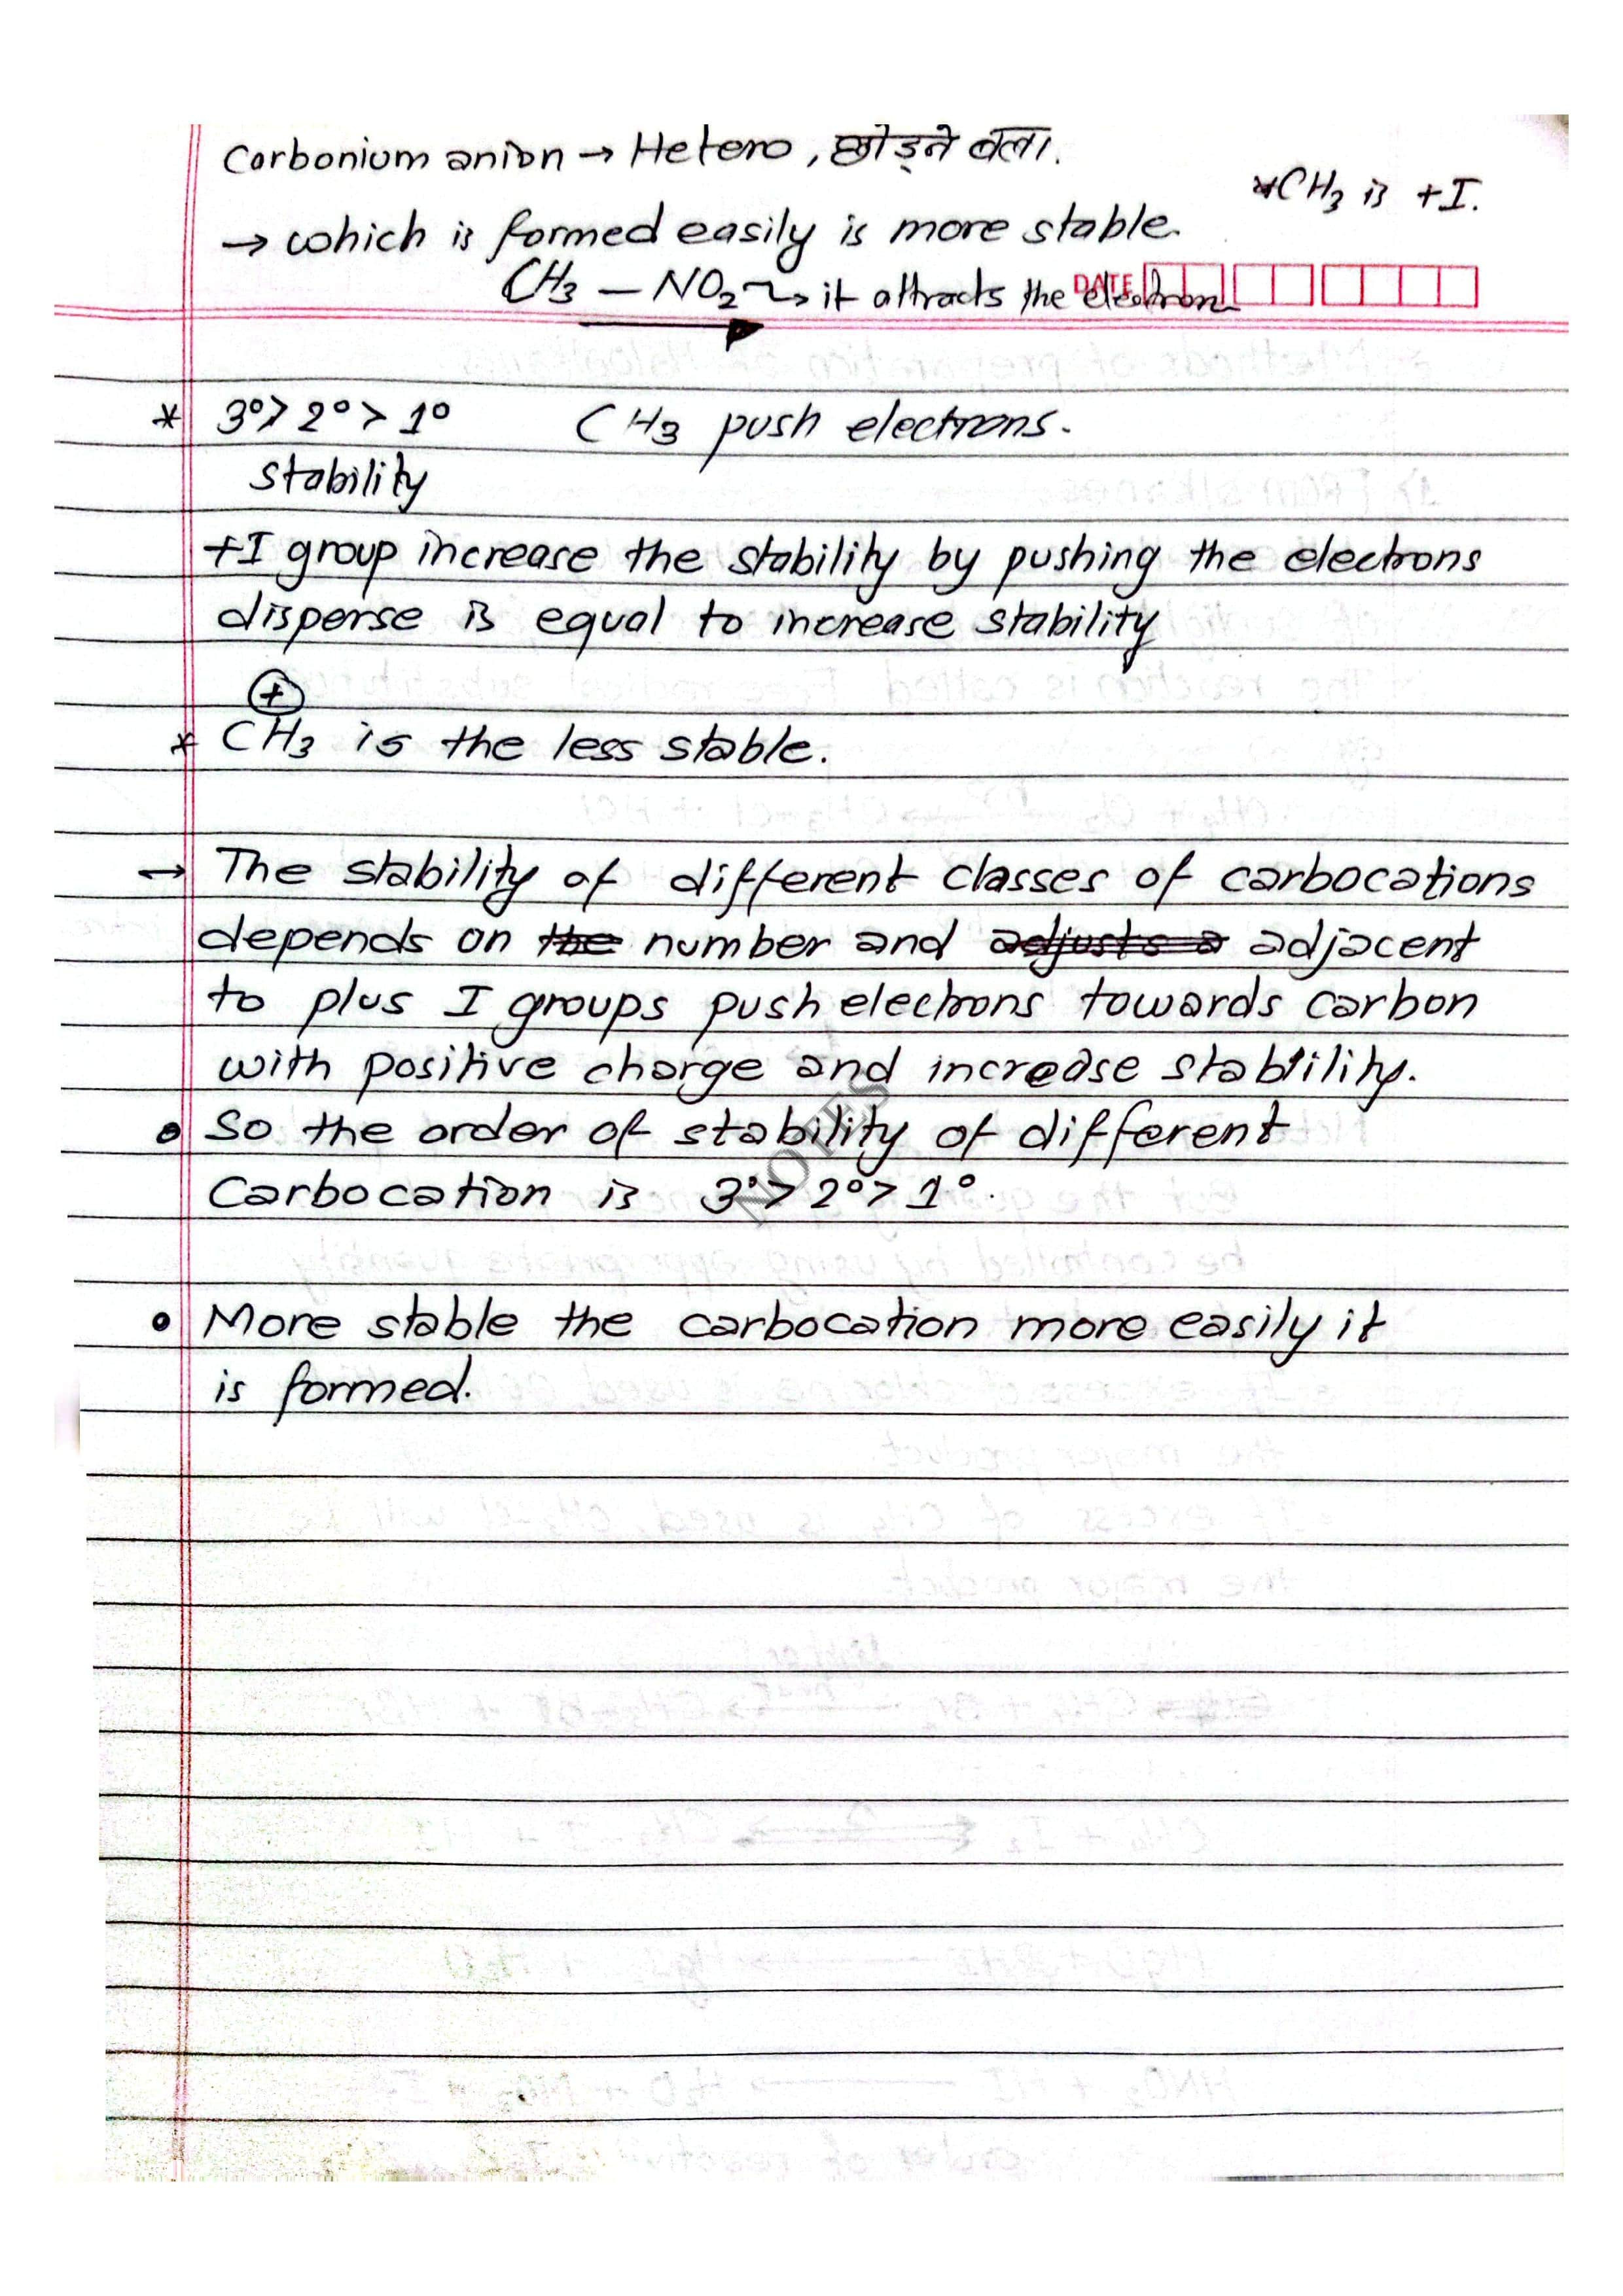 Carbonium anion → Hetero, छोड़ने वला.
*CH₃ is +I.
→ which is formed easily is more stable.
CH₃ — NO₂ → it attracts the electron
DATE
* 3°> 2° > 1° CH₃ push electrons.
stability
+I group increase the stability by pushing the electrons
disperse is equal to increase stability
⊕
* CH₃ is the less stable.
→ The stability of different classes of carbocations
depends on the number and adjusts a adjacent
to plus I groups push electrons towards carbon
with positive charge and increase stability.
• So the order of stability of different
Carbocation is 3°> 2°> 1°.
NOTES
• More stable the carbocation more easily it
is formed.